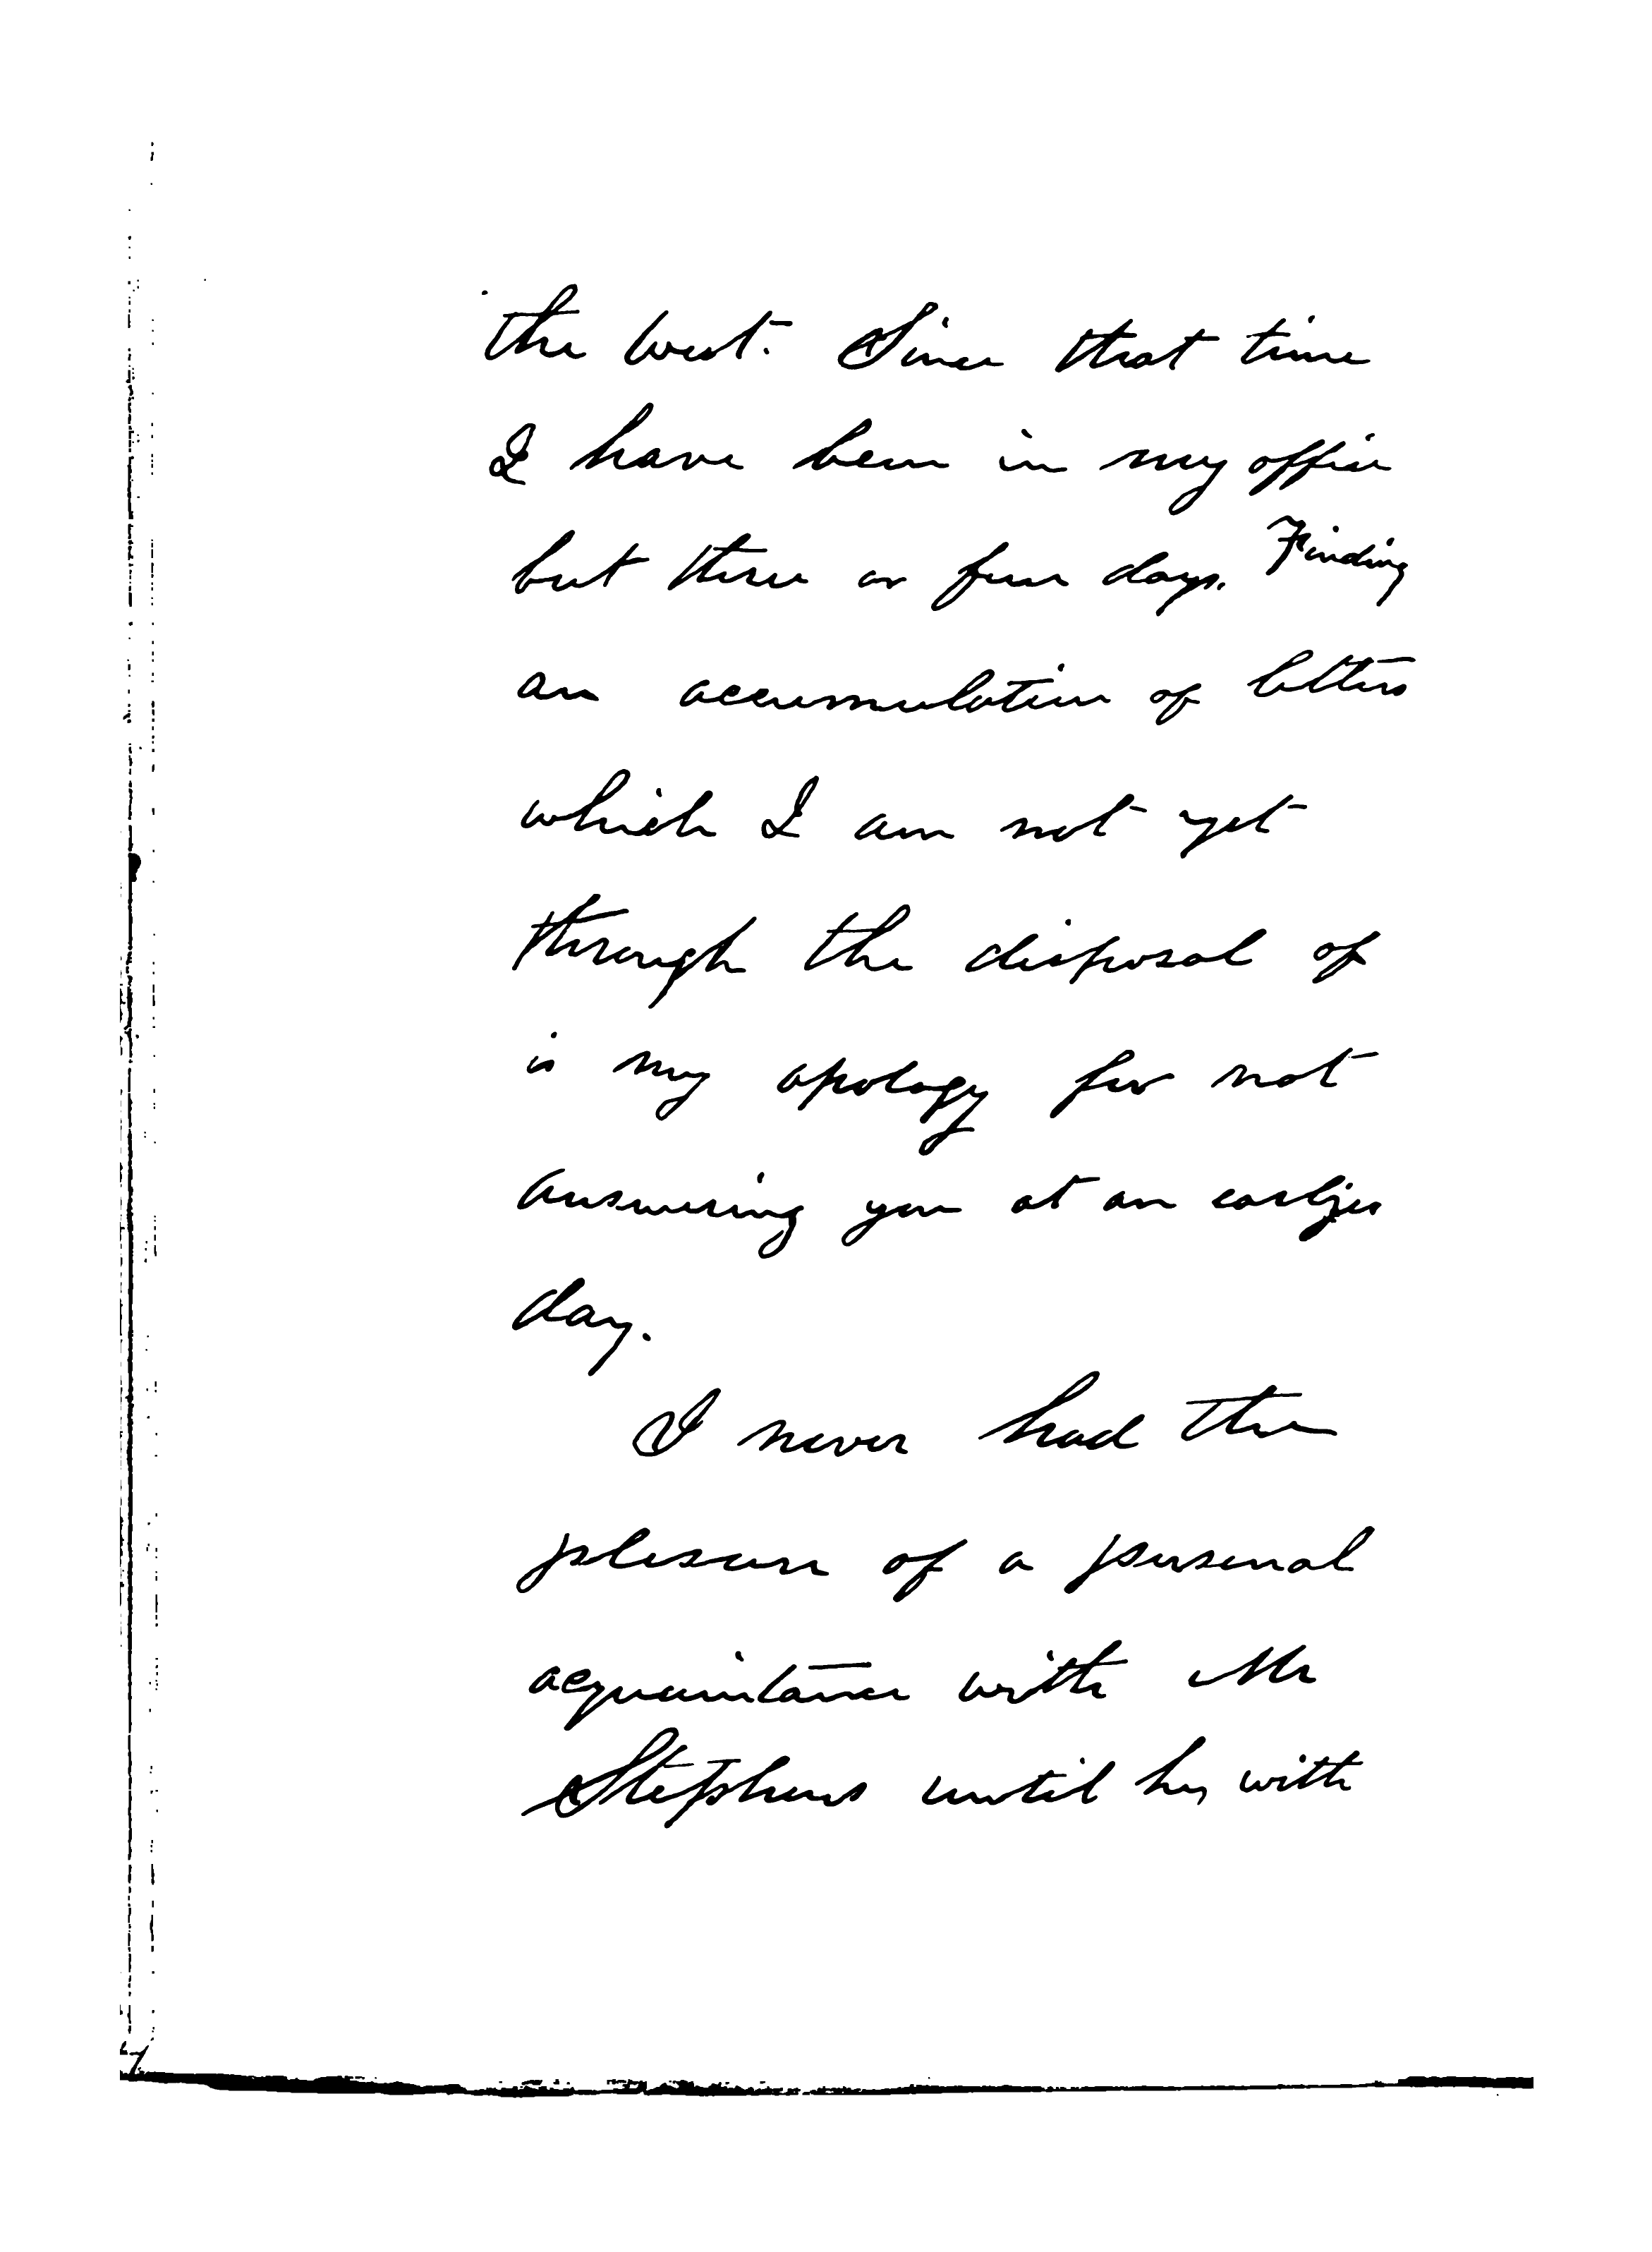 the west. Since that time
I have been in my office
but three or four days. Finding
an accumulation of letters
which I am not yet
through the disposal of
is my apology for not
answering you at an earlier
day.
I never had the
plesure of a personal
acquaintance with Mr
Stephens until he, with